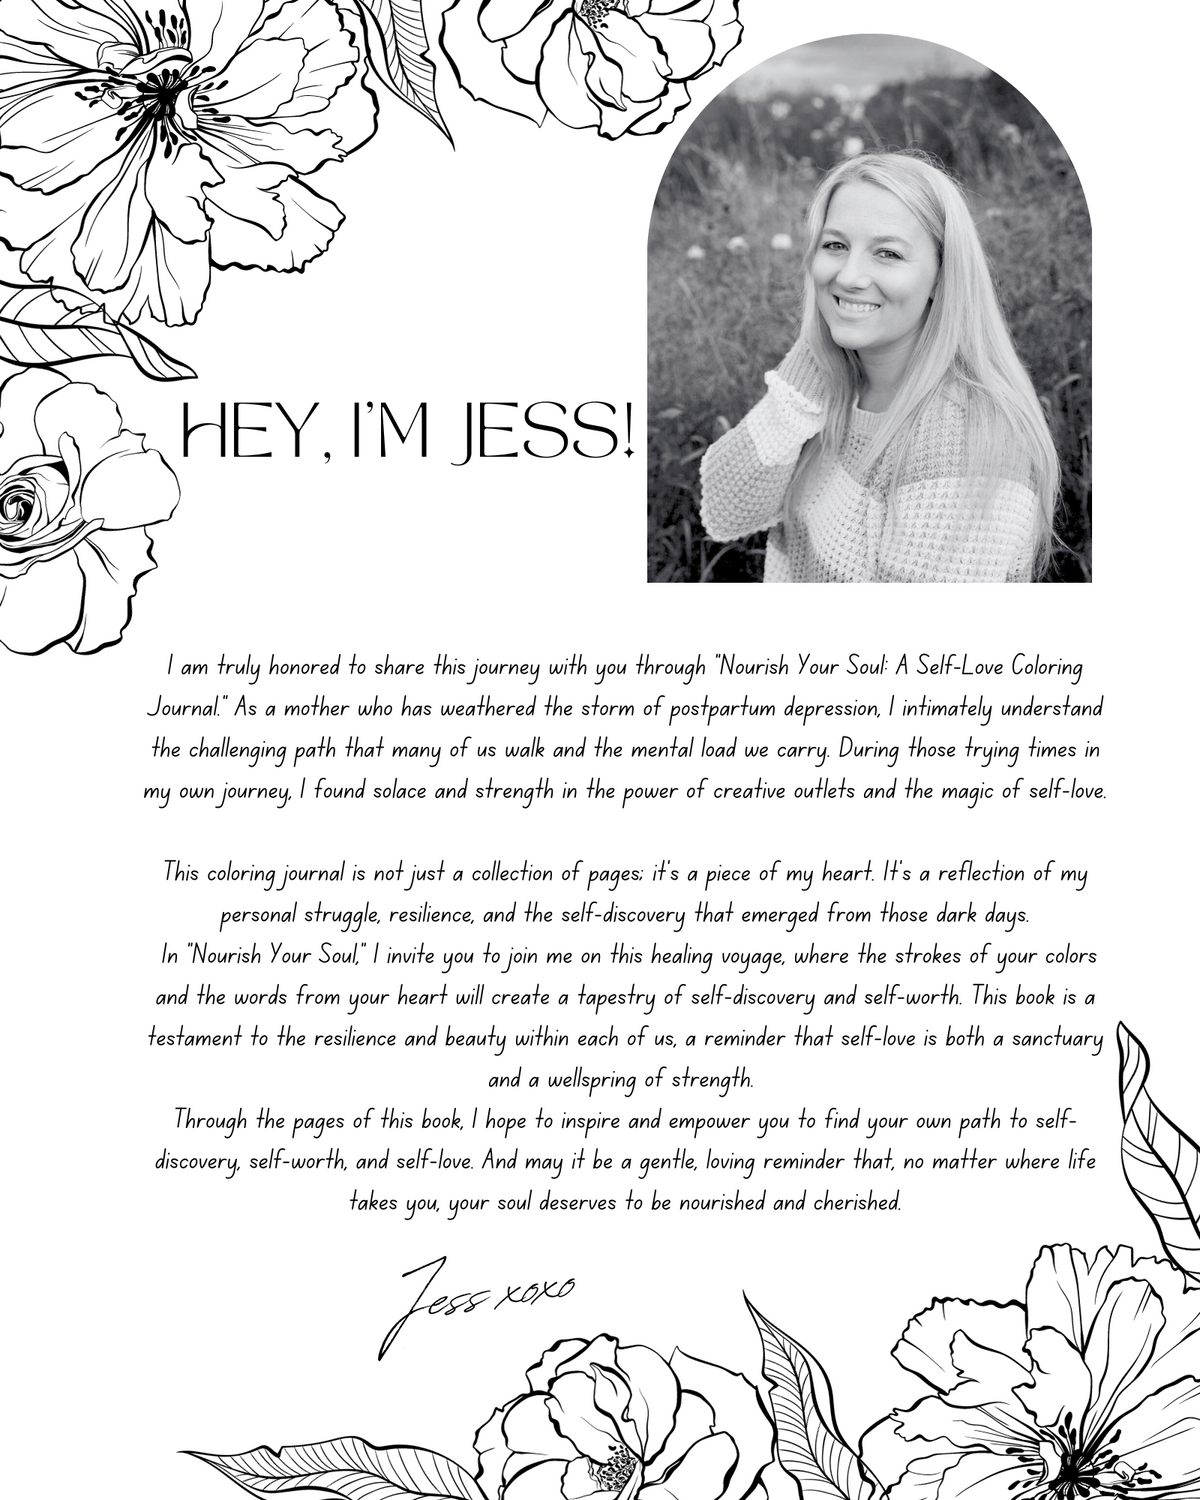 HEY, I'M JESS!
I am truly honored to share this journey with you through "Nourish Your Soul: A Self-Love Coloring
Journal." As a mother who has weathered the storm of postpartum depression, I intimately understand
the challenging path that many of us walk and the mental load we carry. During those trying times in
my own journey, I found solace and strength in the power of creative outlets and the magic of self-love.
This coloring journal is not just a collection of pages; it's a piece of my heart. It's a reflection of my
personal struggle, resilience, and the self-discovery that emerged from those dark days.
In "Nourish Your Soul," I invite you to join me on this healing voyage, where the strokes of your colors
and the words from your heart will create a tapestry of self-discovery and self-worth. This book is a
testament to the resilience and beauty within each of us, a reminder that self-love is both a sanctuary
and a wellspring of strength.
Through the pages of this book, I hope to inspire and empower you to find your own path to self-
discovery, self-worth, and self-love. And may it be a gentle, loving reminder that, no matter where life
takes you, your soul deserves to be nourished and cherished.
Jess xoxo